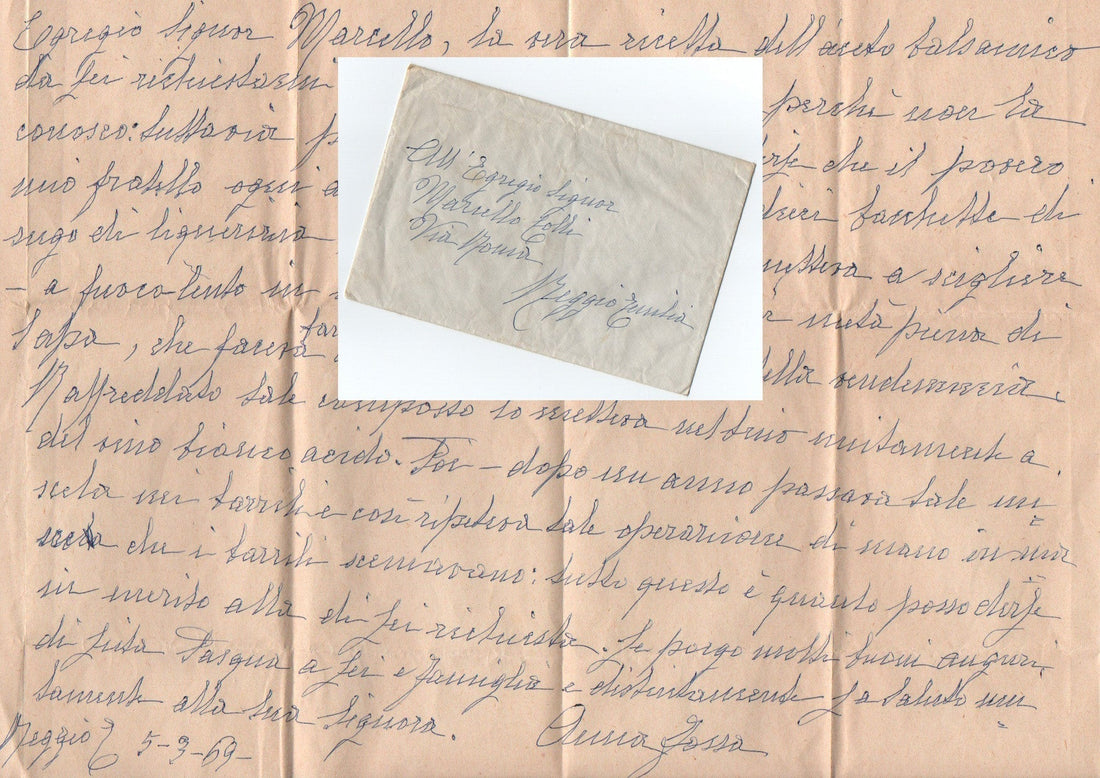 Egregio Signor Marcello, la vera ricetta dell'aceto balsamico
da Lei richiestami perchè non la
conosco: tuttavia che il povero
mio fratello ogni dieci bacchette di
sugo di liquirizia metteva a sciogliere
- a fuoco lento in metà piena di
sapa, che faceva della vendemmia.
Raffreddato tale composto lo metteva nel tino unitamente a
del vino bianco acido. Poi - dopo un anno passava tale mi
scela nei barrili e così ripeteva tale operazione di mano in ma
che i barrili scemavano: tutto questo è quanto posso dirle
in merito alla di Lei richiesta. Le porgo molti buoni auguri
di lieta Pasqua a Lei e famiglia e distintamente La saluto uni
tamente alla sua Signora.
Reggio E 5-3-69- Anna
All'Egregio Signor
Marcello
Via Roma
Reggio Emilia